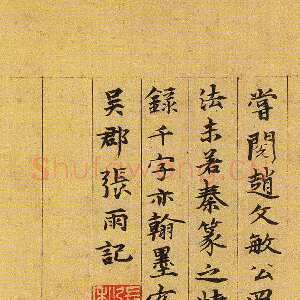 嘗閱趙文敏公四
法未若秦篆之
錄千字亦翰墨
吴郡張雨記